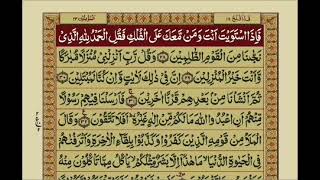 فَاِذَا اسْتَوَيْتَ اَنْتَ وَمَنْ مَّعَكَ عَلَى الْفُلْكِ فَقُلِ الْحَمْدُ لِلّٰهِ الَّذِيْ
نَجّٰىنَا مِنَ الْقَوْمِ الظّٰلِمِيْنَ ﴿٢٨﴾ وَقُلْ رَّبِّ اَنْزِلْنِيْ مُنْزَلًا مُّبٰرَكًا
وَّاَنْتَ خَيْرُ الْمُنْزِلِيْنَ ﴿٢٩﴾ اِنَّ فِيْ ذٰلِكَ لَاٰيٰتٍ وَّاِنْ كُنَّا لَمُبْتَلِيْنَ ﴿٣٠﴾
ثُمَّ اَنْشَاْنَا مِنْۢ بَعْدِهِمْ قَرْنًا اٰخَرِيْنَ ﴿٣١﴾ فَاَرْسَلْنَا فِيْهِمْ رَسُوْلًا
مِّنْهُمْ اَنِ اعْبُدُوا اللّٰهَ مَا لَكُمْ مِّنْ اِلٰهٍ غَيْرُهٗ اَفَلَا تَتَّقُوْنَ ﴿٣٢﴾ وَقَالَ
الْمَلَاُ مِنْ قَوْمِهِ الَّذِيْنَ كَفَرُوْا وَكَذَّبُوْا بِلِقَآءِ الْاٰخِرَةِ وَاَتْرَفْنٰهُمْ
فِي الْحَيٰوةِ الدُّنْيَا مَا هٰذَا اِلَّا بَشَرٌ مِّثْلُكُمْ يَاْكُلُ مِمَّا تَاْكُلُوْنَ مِنْهُ